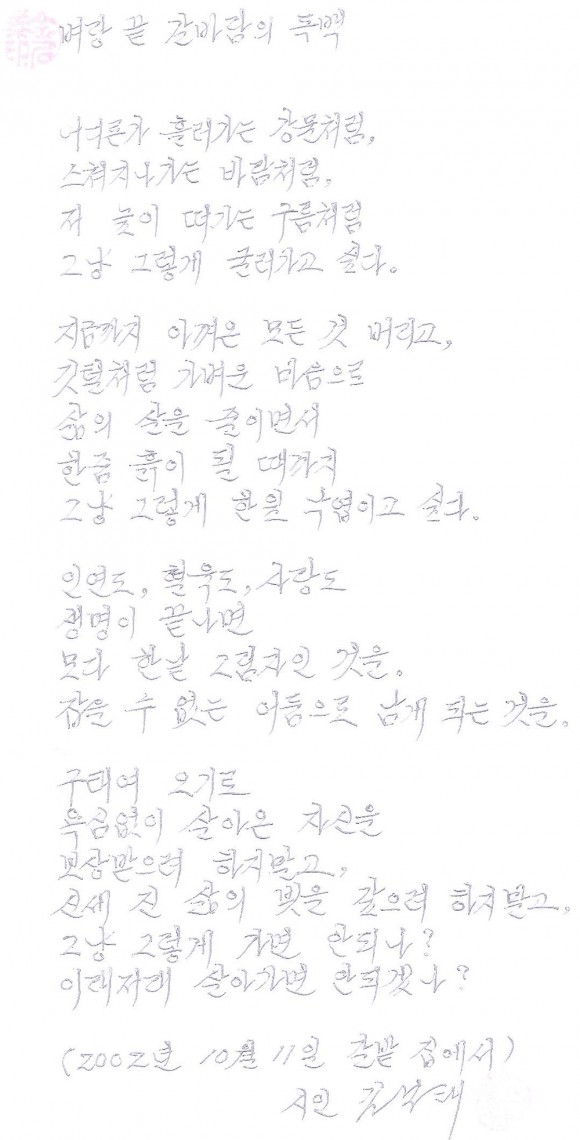 벼랑 끝 갈바람의 독백
흘러가는 강물처럼,
스쳐지나가는 바람처럼,
저 높이 떠가는 구름처럼
그냥 그렇게 굴러가고 싶다.
지금까지 아껴온 모든 것 버리고,
깃털처럼 가벼운 마음으로
삶의 살을 줄이면서
한줌 흙이 될 때까지
그냥 그렇게 한잎 낙엽이고 싶다.
인연도, 혈육도, 사랑도
생명이 끝나면
모다 한낱 그림자인 것을.
잡을 수 없는 어둠으로 남게 되는 것을.
구태여 오기로
욕심없이 살아온 자신을
보상받으려 하지말고,
신세 진 삶의 빚을 갚으려 하지말고,
그냥 그렇게 가면 안되나?
이래저래 살아가면 안되겠나?
(2002년 10월 11일 갈밭 집에서)
시인